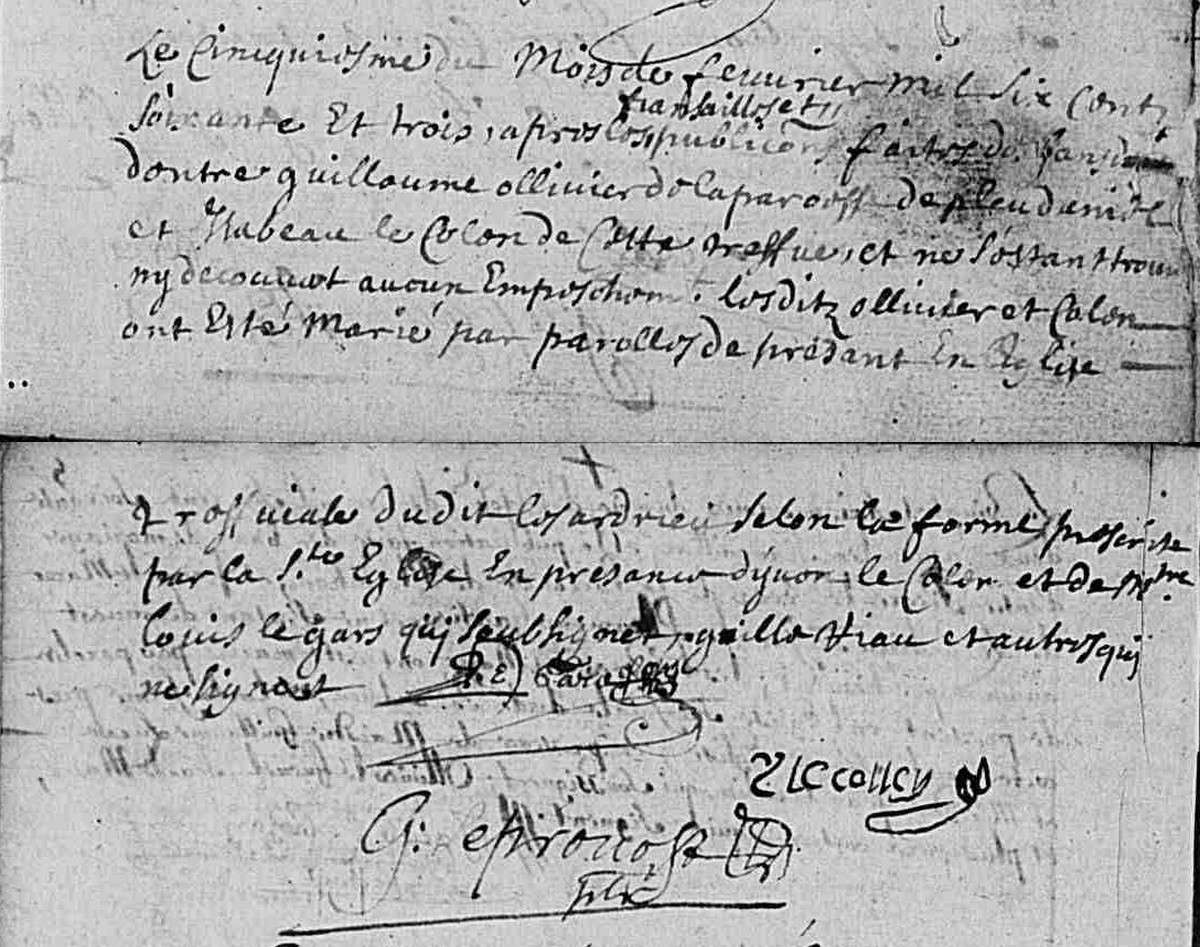 Le Cincquiesme du Mois de feuvrier mil six cent
fiansailles et
soixante Et trois, apres les publicaõns faites de bans
dentre guillaume ollivier de la paroesse de pleudaniel
et Isabeau le Colen de Cette treffue, et ne s'estant trouvé
ny decouvert aucun Empeschemt. lesditz ollivier et Colen
ont Esté Marié par parolles de présant En Eglise
treffuialle dudit lesardrieu selon la forme prescrite
par la Ste Eglise En presance d'yuon le Colen et de
louis le gars qui soubsignet, guille Riau et autres qui
ne signent
Y Le collen
G: eprouost
ptre